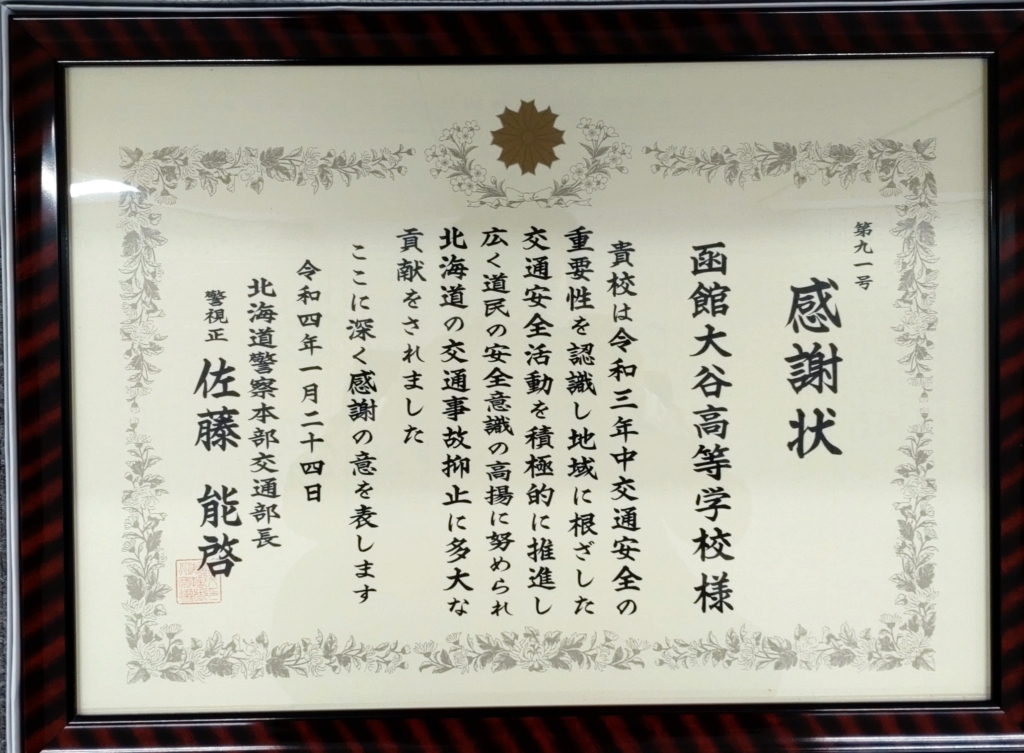 第九一号
感謝状
函館大谷高等学校様
貴校は令和三年中交通安全の
重要性を認識し地域に根ざした
交通安全活動を積極的に推進し
広く道民の安全意識の高揚に努められ
北海道の交通事故抑止に多大な
貢献をされました
ここに深く感謝の意を表します
令和四年一月二十四日
北海道警察本部交通部長
警視正 佐藤 能啓